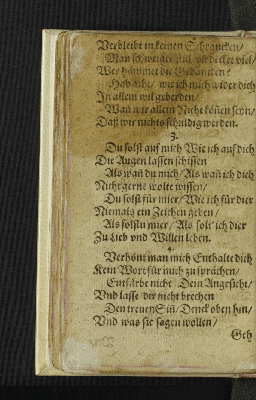 Verbleibt in keinen Schrancken/
Man schweiget still vñ decket viel/
Wer hämmet die Gedancken?
Hab acht/ wie ich mich wider dich
In allem wil geberden/
Wañ wir allein Nicht köñen seyn/
Daß wir nichts schuldig werden.
3.
Du solst auf mich Wie ich auf dich
Die Augen lassen schissen
Als wañ du mich/ Als wañ ich dich
Nicht gerne wolte wissen/
Du solst für mier/ Wie ich für dier
Niemals ein Zeichen geben/
Als folstu mier/ Als solt' ich dier
Zu Lieb vnd Willen leben.
4.
Verhönt man mich Enthalte dich
Kein Wort für mich zu sprächen/
Entfärbe nicht Dein Angesicht/
Vnd lasse dir nicht brechen
Den treuen Siñ/ Denck oben hin/
Vnd was sie sagen wollen/
Geh